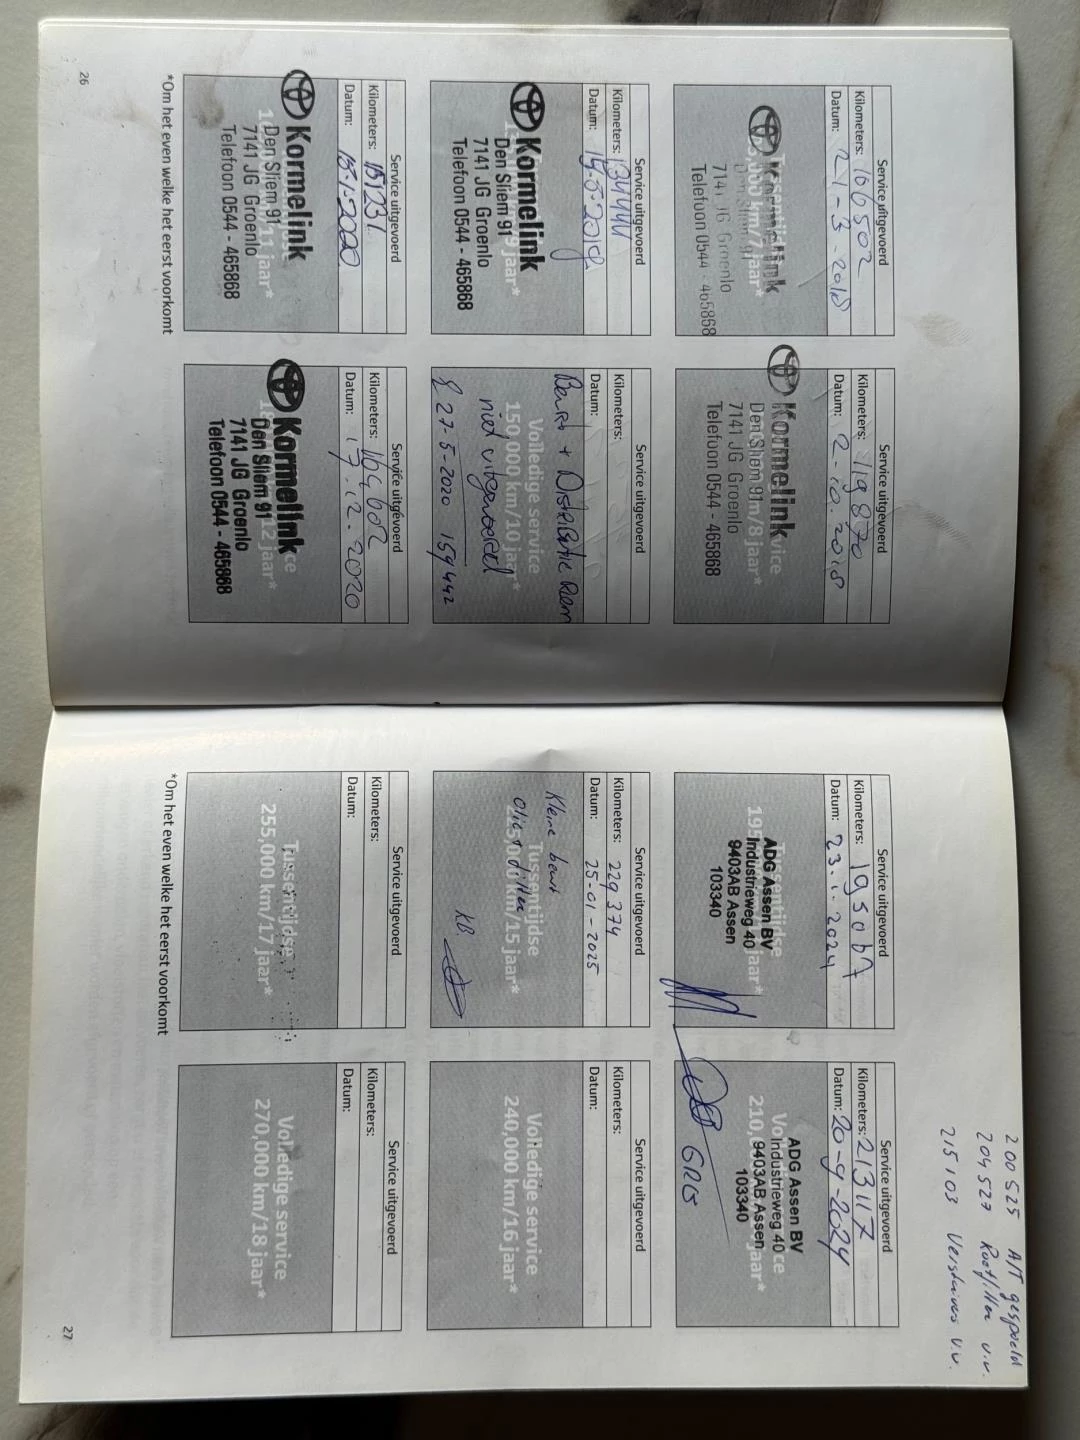 Service uitgevoerd
Kilometers: 106502
Datum: 21-3-2018
Kormelink
7141 JG Groenlo
Telefoon 0544 - 465868
Service uitgevoerd
Kilometers: 119870
Datum: 2-10-2018
Kormelink
Den Sliem 91
7141 JG Groenlo
Telefoon 0544 - 465868
Service uitgevoerd
Kilometers: 134444
Datum:
Kormelink
Den Sliem 91
7141 JG Groenlo
Telefoon 0544 - 465868
Service uitgevoerd
Kilometers:
Datum:
Beurt + Distributie Riem
Volledige service
niet uitgevoerd
150,000 km/10 jaar*
27-5-2020 159442
Service uitgevoerd
Kilometers: 151231
Datum: 15-1-2020
Kormelink
Den Sliem 91
7141 JG Groenlo
Telefoon 0544 - 465868
Service uitgevoerd
Kilometers: 169602
Datum: 17.12.2020
Kormelink
Den Sliem 91
7141 JG Groenlo
Telefoon 0544 - 465868
*Om het even welke het eerst voorkomt
26
200525 A/T gespoeld
204527 Roetfilter v.v.
215103 Verstuivers v.v.
Service uitgevoerd
Kilometers: 195067
Datum: 23.1.2024
ADG Assen BV
Industrieweg 40
9403AB Assen
103340
Service uitgevoerd
Kilometers: 213117
Datum: 20-9-2024
ADG Assen BV
Industrieweg 40
9403AB Assen
103340
GRB
Service uitgevoerd
Kilometers: 229374
Datum: 25-01-2025
Kleine beurt
Tussentijdse
olie + filter
225,000 km/15 jaar*
KB
Service uitgevoerd
Kilometers:
Datum:
Volledige service
240,000 km/16 jaar*
Service uitgevoerd
Kilometers:
Datum:
Tussentijdse
255,000 km/17 jaar*
Service uitgevoerd
Kilometers:
Datum:
Volledige service
270,000 km/18 jaar*
*Om het even welke het eerst voorkomt
27